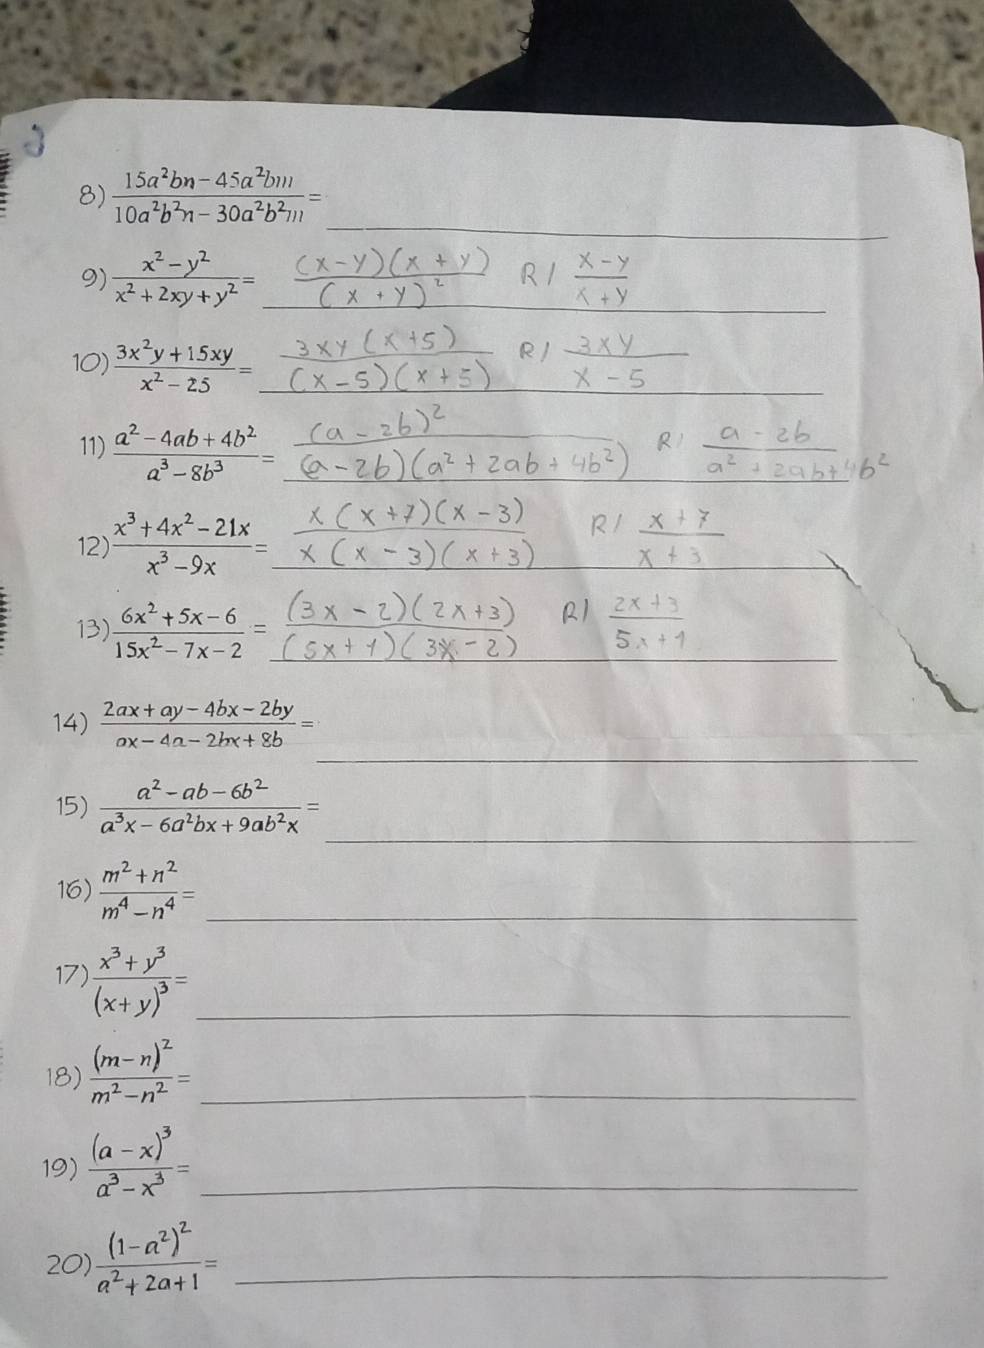 8) (15a²bn - 45a²bm)/(10a²b²n - 30a²b²m) =
9) (x² - y²)/(x² + 2xy + y²) = ((x-y)(x+y))/((x+y)²) R/ (x-y)/(x+y)
10) (3x²y + 15xy)/(x² - 25) = (3xy(x+5))/((x-5)(x+5)) R/ (3xy)/(x-5)
11) (a² - 4ab + 4b²)/(a³ - 8b³) = ((a-2b)²)/((a-2b)(a²+2ab+4b²)) R/ (a-2b)/(a²+2ab+4b²)
12) (x³ + 4x² - 21x)/(x³ - 9x) = (x(x+7)(x-3))/(x(x-3)(x+3)) R/ (x+7)/(x+3)
13) (6x² + 5x - 6)/(15x² - 7x - 2) = ((3x-2)(2x+3))/((5x+1)(3x-2)) R/ (2x+3)/(5x+1)
14) (2ax + ay - 4bx - 2by)/(ax - 4a - 2bx + 8b) =
15) (a² - ab - 6b²)/(a³x - 6a²bx + 9ab²x) =
16) (m² + n²)/(m⁴ - n⁴) =
17) (x³ + y³)/((x+y)³) =
18) ((m-n)²)/(m² - n²) =
19) ((a-x)³)/(a³ - x³) =
20) ((1-a²)²)/(a² + 2a + 1) =